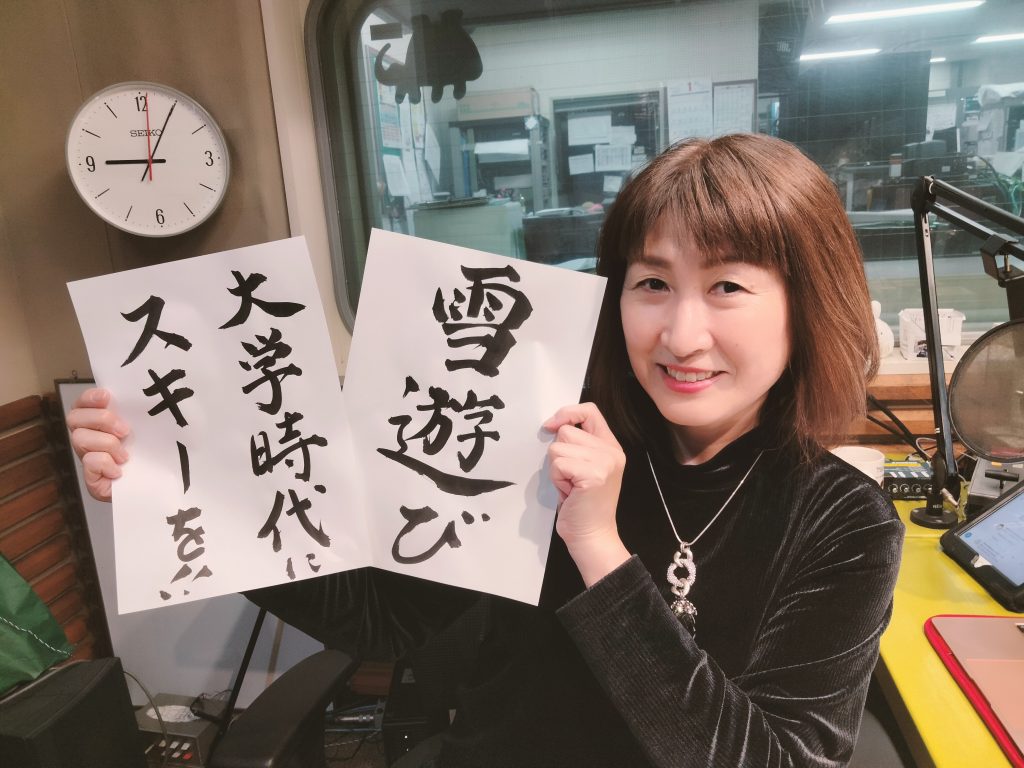 雪遊び
大学時代に
スキーを…
SEIKO
12
3
6
9
1